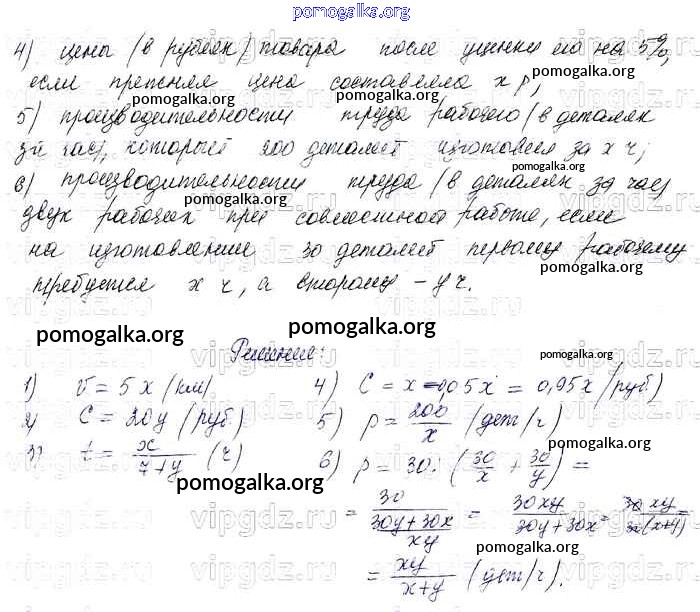 pomogalka.org
4) цены (в рублях) товара после уценки его на 5%,
если прежняя цена составляла x р;
pomogalka.org pomogalka.org
5) производительности труда рабочего (в деталях
за час), который 200 деталей изготовил за x ч;
pomogalka.org
6) производительности труда (в деталях за час)
двух рабочих при совместной работе, если
pomogalka.org
на изготовление 30 деталей первому рабочему
pomogalka.org
требуется x ч, а второму – y ч.
pomogalka.org pomogalka.org
Решение:
pomogalka.org
1) v = 5x (км) 4) C = x – 0,05x = 0,95x (руб.)
2) C = 20y (руб.) 5) p = 200/x (дет/ч)
pomogalka.org
3) t = x/7+y (ч) 6) p = 30 : (30/x + 30/y) =
pomogalka.org
= 30/30y+30x/xy = 30xy/30y+30x = 30xy/30(x+y) =
pomogalka.org
= xy/x+y (дет/ч).
pomogalka.org